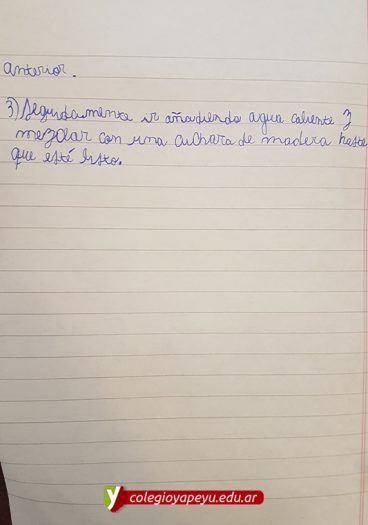 anterior.
3) Seguidamente ir añadiendo agua caliente y
mezclar con una cuchara de madera hasta
que esté listo.
colegioyapeyu.edu.ar